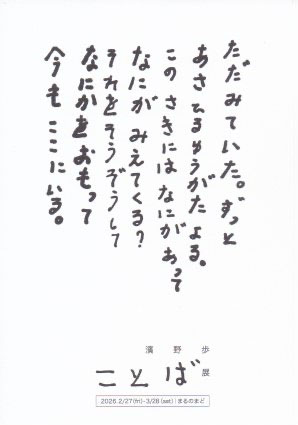 ただみていた。ずっと
あさひるゆうがたよる。
このさきにはなにがあって
なにがみえてくる?
それをそうぞうして
なにかをおもって
今もここにいる。
濱野歩
ことば展
2026.2/27(fri)-3/28(sat) | まるのまど